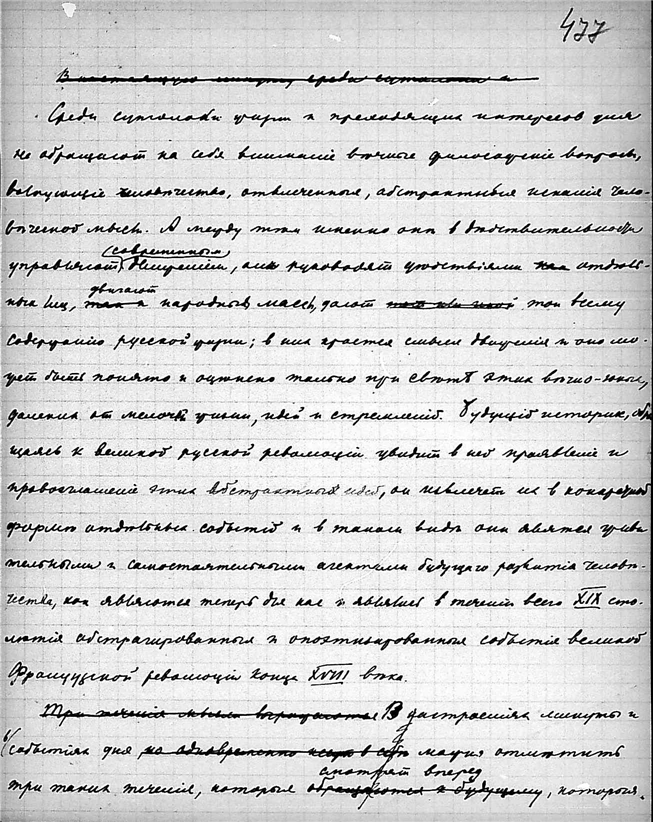 477
В настоящую минуту, среди сутолоки
Среди сутолоки жизни и преходящих интересов дня
не обращают на себя внимание вѣчные философскіе вопросы,
волнующіе человѣчество, отвлеченныя, абстрактныя исканія чело-
вѣческой мысли. А между тѣм именно они в дѣйствительности
современным
управляют движеніем, они руководят дѣйствіями отдѣль-
двигают
ных лиц, народныя массы, дают тон всему
содержанію русской жизни; в них кроется смысл движенія и оно мо-
жет быть понято и оцѣнено только при свѣтѣ этих вѣчно-юных,
далеких от мелочей жизни, идей и стремленій. Будущій историк, обра-
щаясь к великой русской революціи увидит в ней проявленіе и
провозглашеніе этих абстрактных идей, он извлечет их в конкретной
формѣ отдѣльных событій и в таком видѣ они явятся живи-
тельными и самостоятельными агентами будущаго развитія человѣ-
чества, как являются теперь для нас и являлись в теченіи всего XIX сто-
лѣтія абстрагированныя и опоэтизированныя событія великой
Французской революціи конца XVIII вѣка.
Три теченія мысли В настроеніях минуты и
в событіях дня, но одновременно можно отмѣтить
смотрят вперед
три таких теченія, которыя обращаются к будущему, которыя